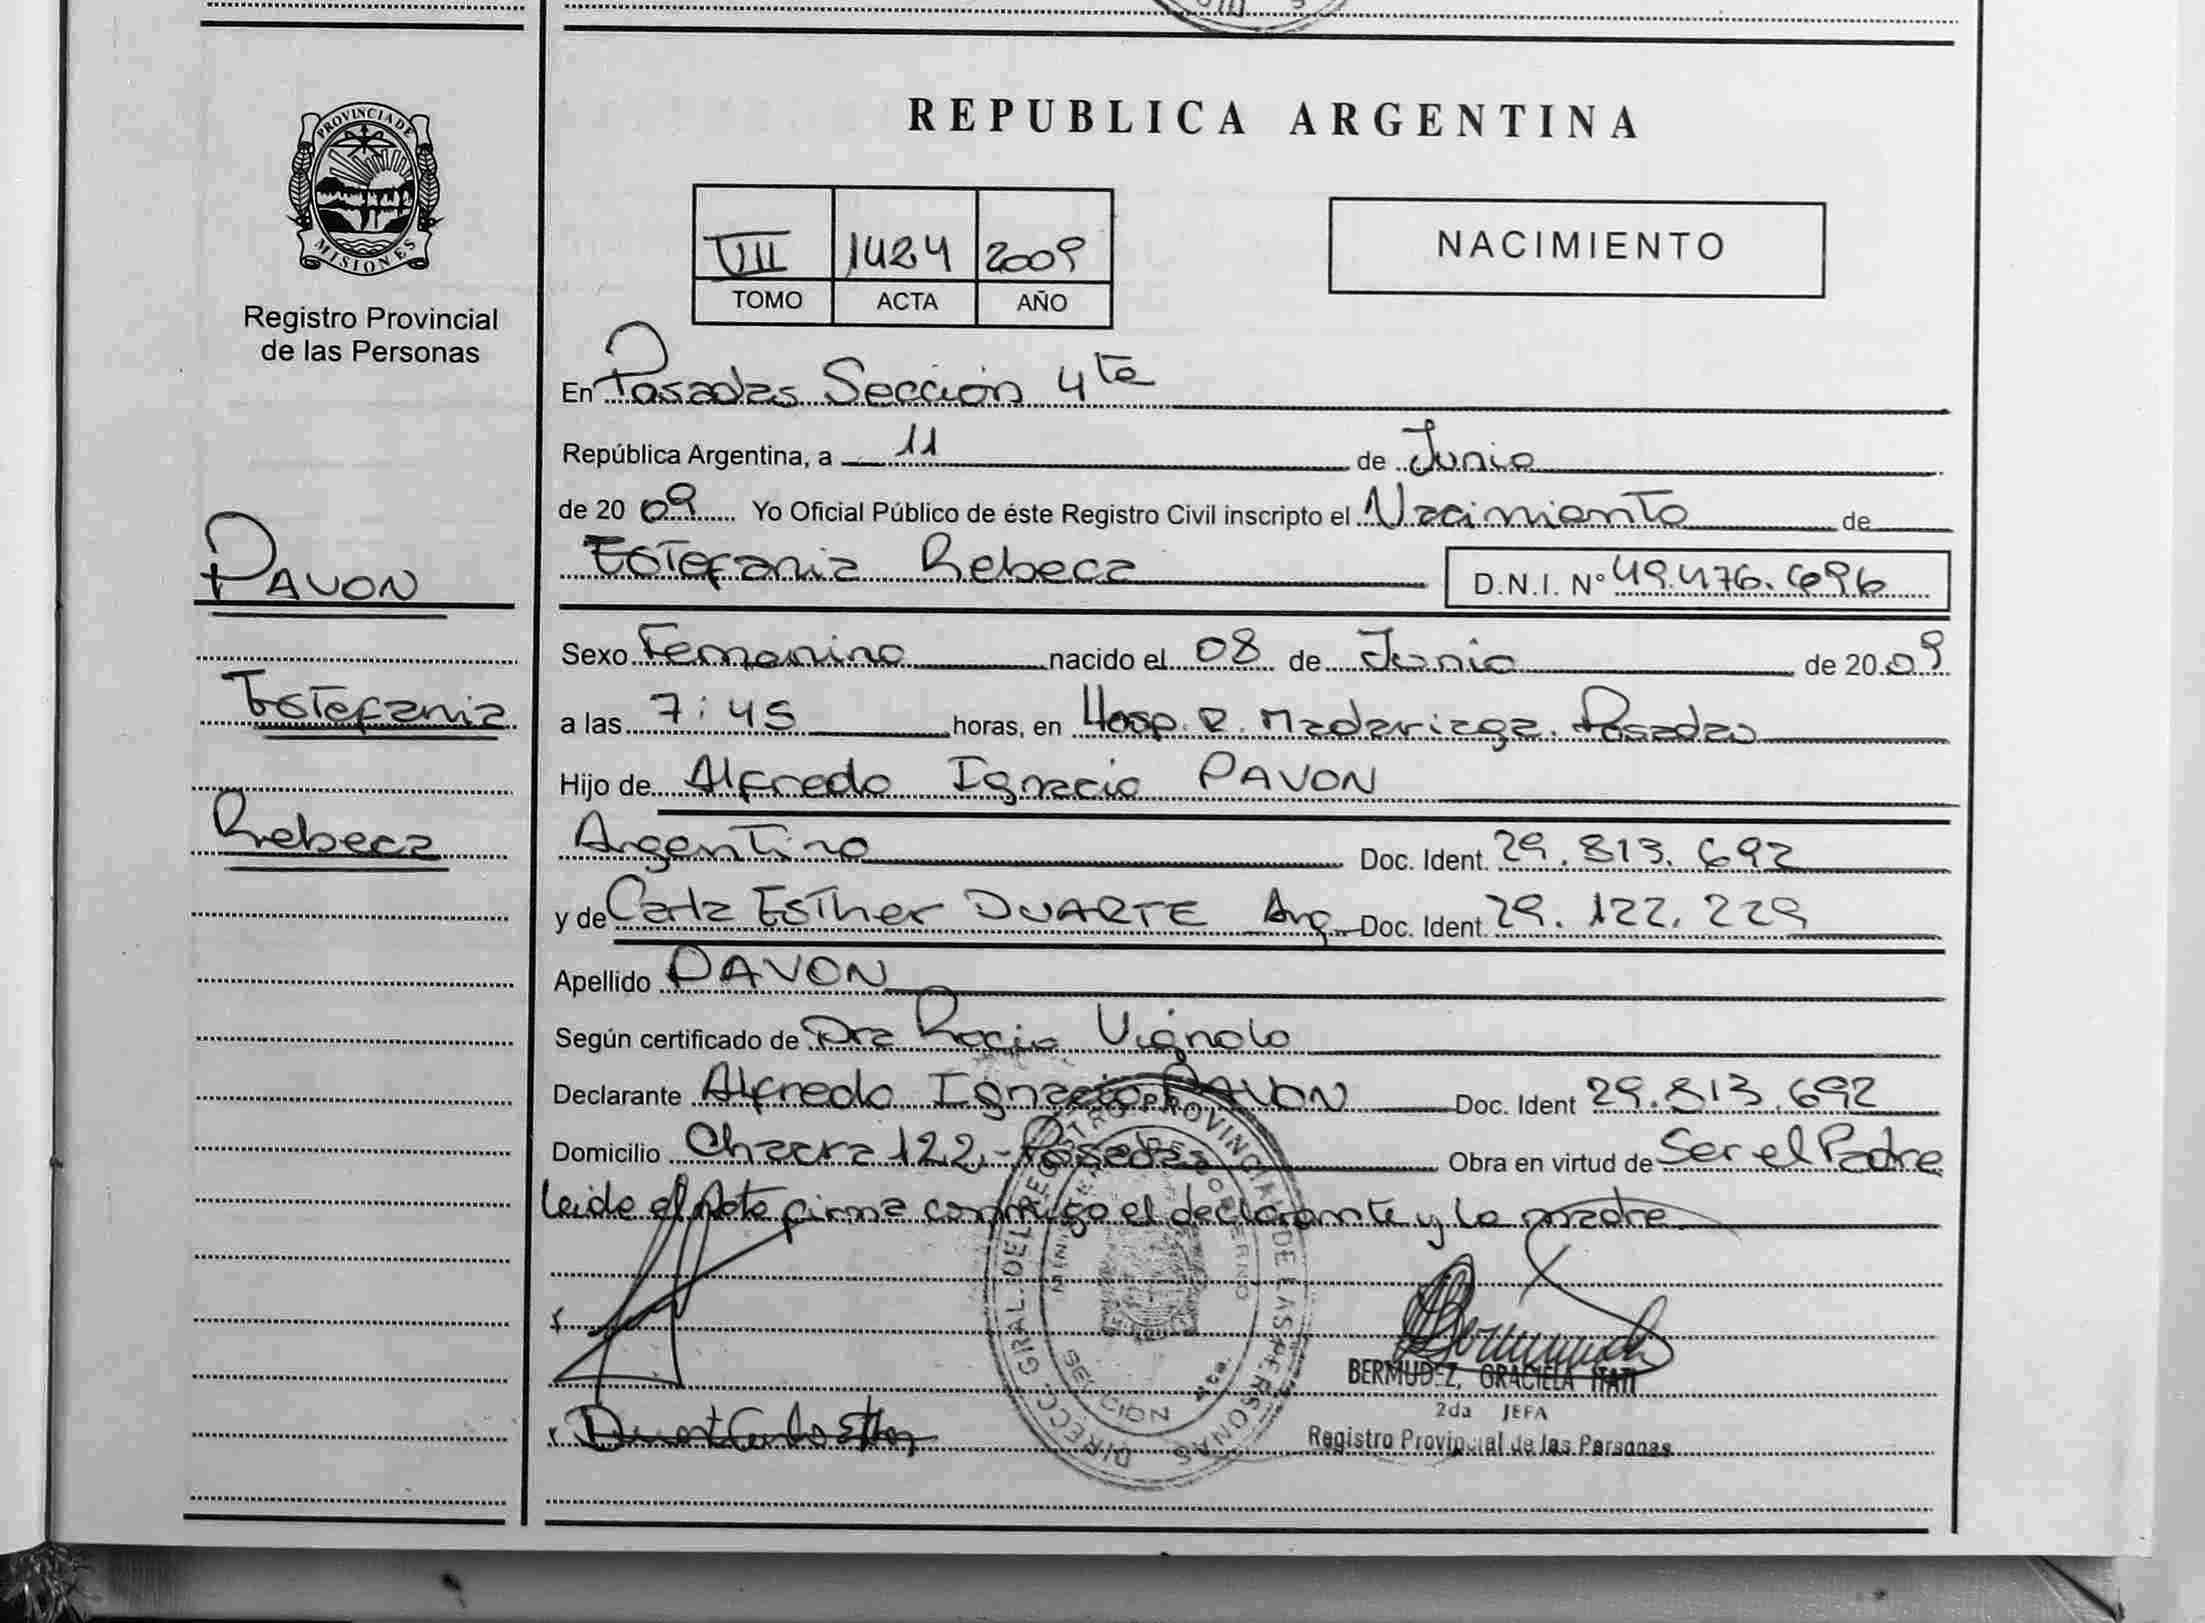 REPUBLICA ARGENTINA
PROVINCIA DE
MISIONES
Registro Provincial
de las Personas
VIII 1424 2009
TOMO ACTA AÑO
NACIMIENTO
En Posadas Sección 4ta
República Argentina, a 11 de Junio
de 20 09 Yo Oficial Público de éste Registro Civil inscripto el Nacimiento de
Estefania Rebeca D.N.I. Nº 49.476.696
PAVON
Estefania
Rebeca
Sexo Femenino nacido el 08 de Junio de 20 09
a las 7:45 horas, en Hosp. R. Madariaga. Posadas
Hijo de Alfredo Ignacio PAVON
Argentino Doc. Ident. 29.813.692
y de Carla Esther DUARTE Arg Doc. Ident. 29.122.229
Apellido PAVON
Según certificado de Dra Rocio Vignolo
Declarante Alfredo Ignacio PAVON Doc. Ident 29.813.692
Domicilio Chacra 122 - Posadas Obra en virtud de Ser el Padre
leida el Acta firma conmigo el declarante y la madre
DIRECC. GRAL. DEL REGISTRO PROVINCIAL DE LAS PERSONAS
GOBIERNO
SECCION 4ta.
BERMUDEZ, GRACIELA ITATI
2da JEFA
Registro Provincial de las Personas